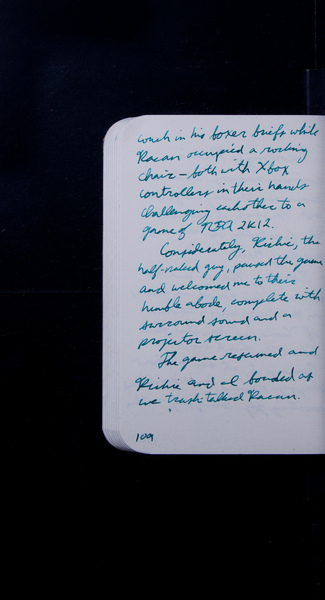 couch in his boxer briefs while
Racan occupied a rocking
chair – both with Xbox
controllers in their hands
challenging each other to a
game of NBA 2K12.
Considerately, Richie, the
half-naked guy, paused the game
and welcomed me to their
humble abode, complete with
surround sound and a
projector screen.
The game resumed and
Richie and I bonded as
we trash-talked Racan.
109